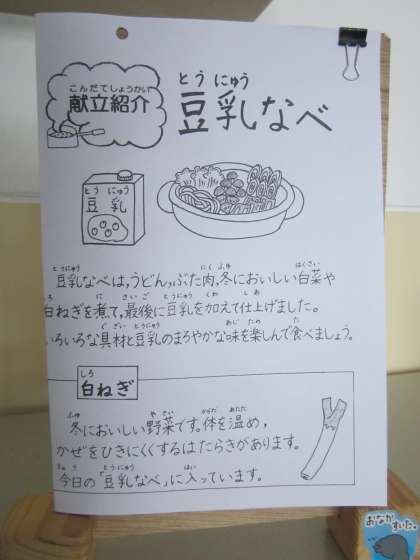 こんだてしょうかい
献立紹介
とうにゅう
豆乳なべ
とうにゅう
豆乳
とうにゅう にく ふゆ はくさい
豆乳なべは,うどん,ぶた肉,冬においしい白菜や
しろ に さいご とうにゅう くわ しあ
白ねぎを煮て,最後に豆乳を加えて仕上げました。
ぐざい とうにゅう あじ たの た
いろいろな具材と豆乳のまろやかな味を楽しんで食べましょう。
しろ
白ねぎ
ふゆ やさい からだ あたた
冬においしい野菜です。体を温め,
かぜをひきにくくするはたらきがあります。
きょう とうにゅう はい
今日の「豆乳なべ」に入っています。
おなか
すいた。